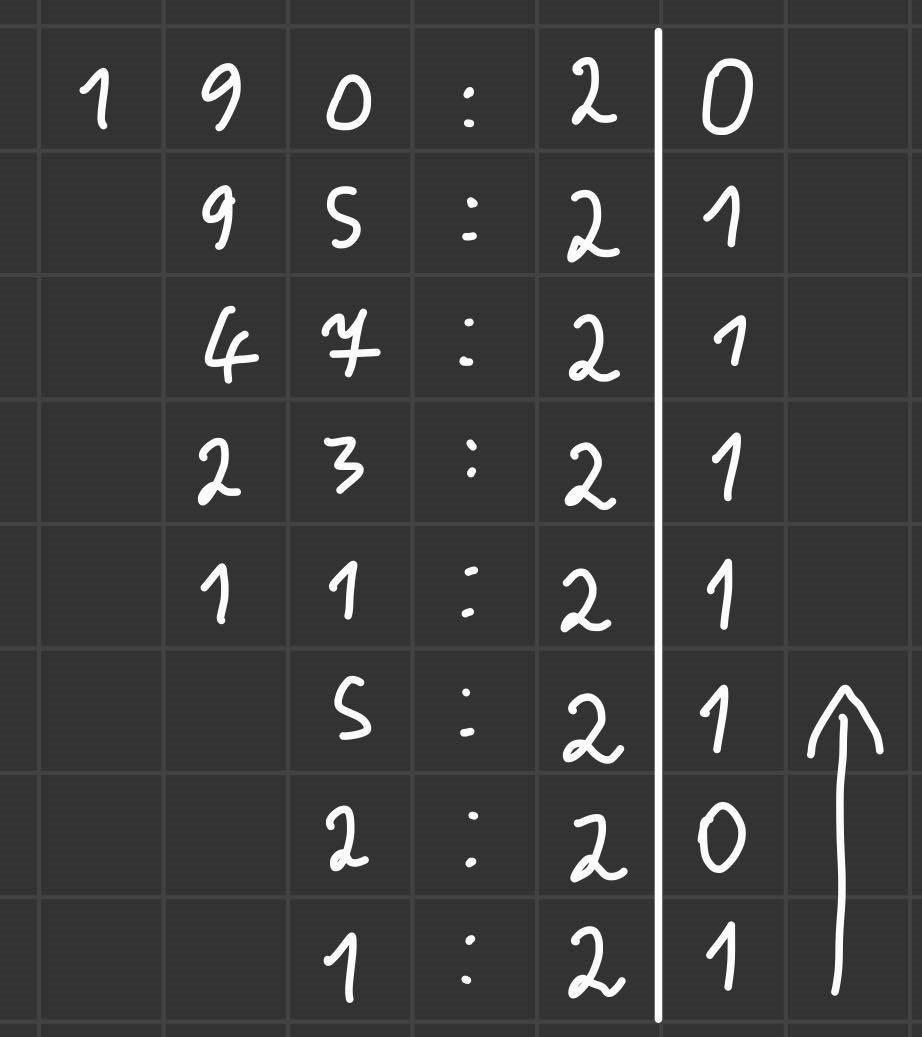 190 : 2 | 0
95 : 2 | 1
47 : 2 | 1
23 : 2 | 1
11 : 2 | 1
5 : 2 | 1
2 : 2 | 0
1 : 2 | 1